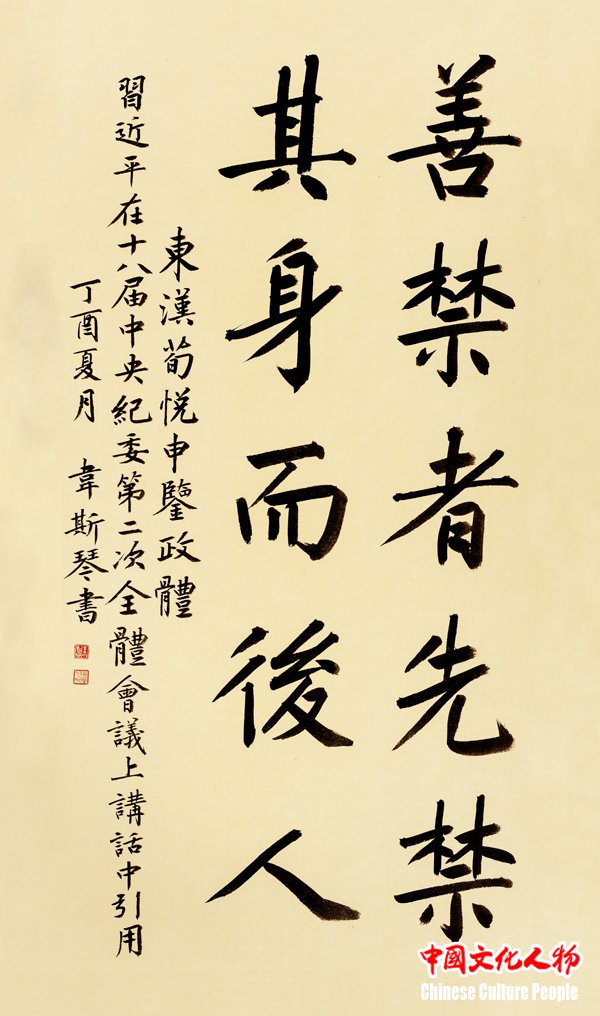 善禁者先禁
其身而後人
東漢荀悅申鑒政體
習近平在十八届中央紀委第二次全體會議上講話中引用
丁酉夏月 韋斯琴書
中国文化人物
Chinese Culture People